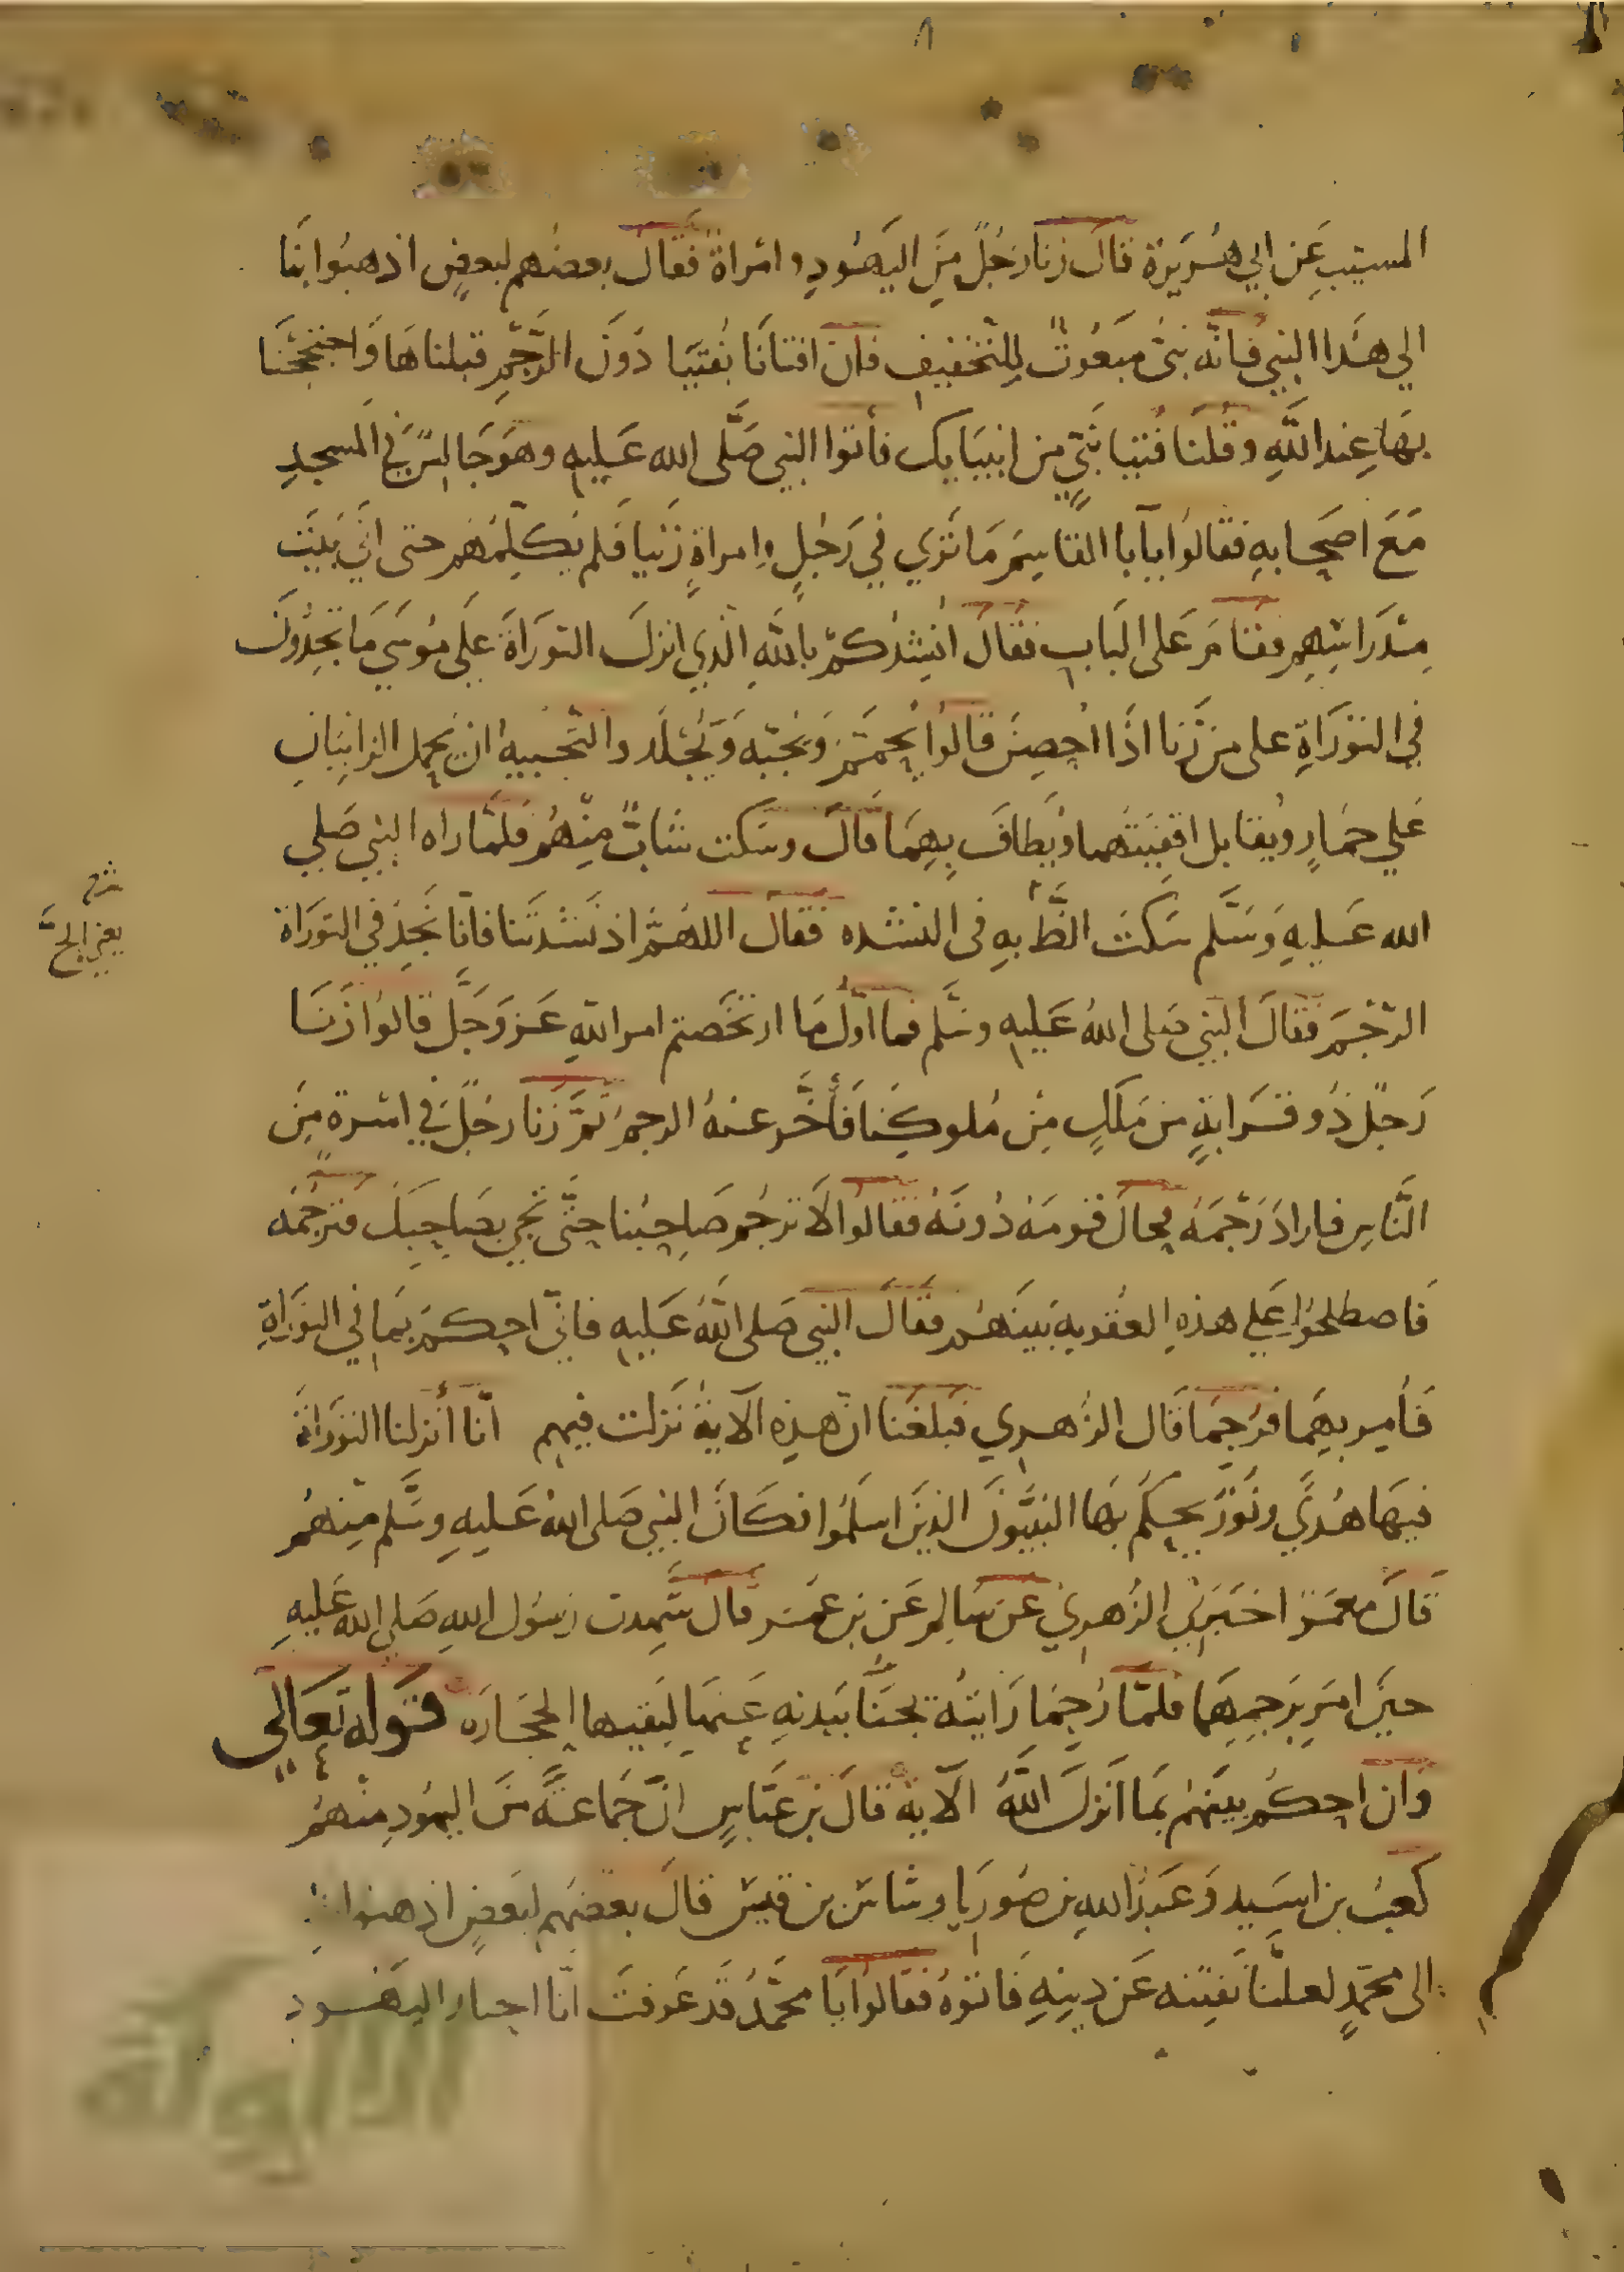 ٨
المسيب عن ابي هريرة قال زنا رجل من اليهود وامراة فقال بعضهم لبعض اذهبوا بنا
الي هذا النبي فانه نبي مبعوث للتخفيف فان افتانا بفتيا دون الرجم قبلناها واحتججنا
بها عند الله وقلنا فتيا نبي من انبيايك فأتوا النبي صلى الله عليه وهو جالس في المسجد
مع اصحابه فقالوا يآبا القاسم ما ترى في رجل وامراة زنيا فلم يكلمهم حتى اتي بيت
مدراسهم فقام على الباب فقال انشدكم بالله الذي انزل التوراة على موسى ما تجدون
في التوراة على من زنا اذا احصن قالوا يحمم ويجبه ويجلد والتجبيه ان يحمل الزانيان
علي حمار ويقابل اقفيتهما ويطاف بهما قال وسكت شاب منهم فلما راه النبي صلي
الله عليه وسلم سكت الظ به في النشده فقال اللهم اذ نشدتنا فانا نجد في التوراة
الرجم فقال النبي صلى الله عليه وسلم فما اول ما ارتخصتم امر الله عز وجل قالوا زنا
رجل ذو قرابة من ملك من ملوكنا فأخر عنه الرجم ثم زنا رجل في اسرة من
الناس فاراد رجمه فحال قومه دونه فقالوا لا ترجم صاحبنا حتى تجي بصاحبك فترجمه
فاصطلحوا علي هذه العقوبة بينهم فقال النبي صلى الله عليه فاني احكم بما في التوراة
فأمر بهما فرجما قال الزهري فبلغنا ان هذه الآية نزلت فيهم انا أنزلنا التوراة
فيها هدي ونور يحكم بها النبيون الذين اسلموا فكان النبي صلى الله عليه وسلم منهم
قال معمر اخبرني الزهري عن سالم عن بن عمر قال شهدت رسول الله صلي الله عليه
حين امر برجمهما فلما رجما رايته يجنا بيديه عنها ليقيها الحجاره قوله تعالى
وان احكم بينهم بما انزل الله الآية قال بن عباس ان جماعة من اليهود منهم
كعب بن اسيد وعبد الله بن صوريا وشاس بن قيس قال بعضهم لبعض اذهبوا بنا
الى محمد لعلنا نفتنه عن دينه فاتوه فقالوا يا محمد قد عرفت انا احبار اليهود
يعني الح
الألوكة